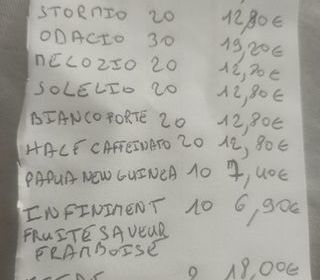 STORMIO 20 12,80€
ODACIO 30 19,20€
MELOZIO 20 12,70€
SOLELIO 20 12,80€
BIANCO FORTE 20 12,80€
HALF CAFFEINATO 20 12,80€
PAPUA NEW GUINEA 10 7,40€
INFINIMENT 10 6,90€
FRUITE SAVEUR
FRAMBOISE
18,00€